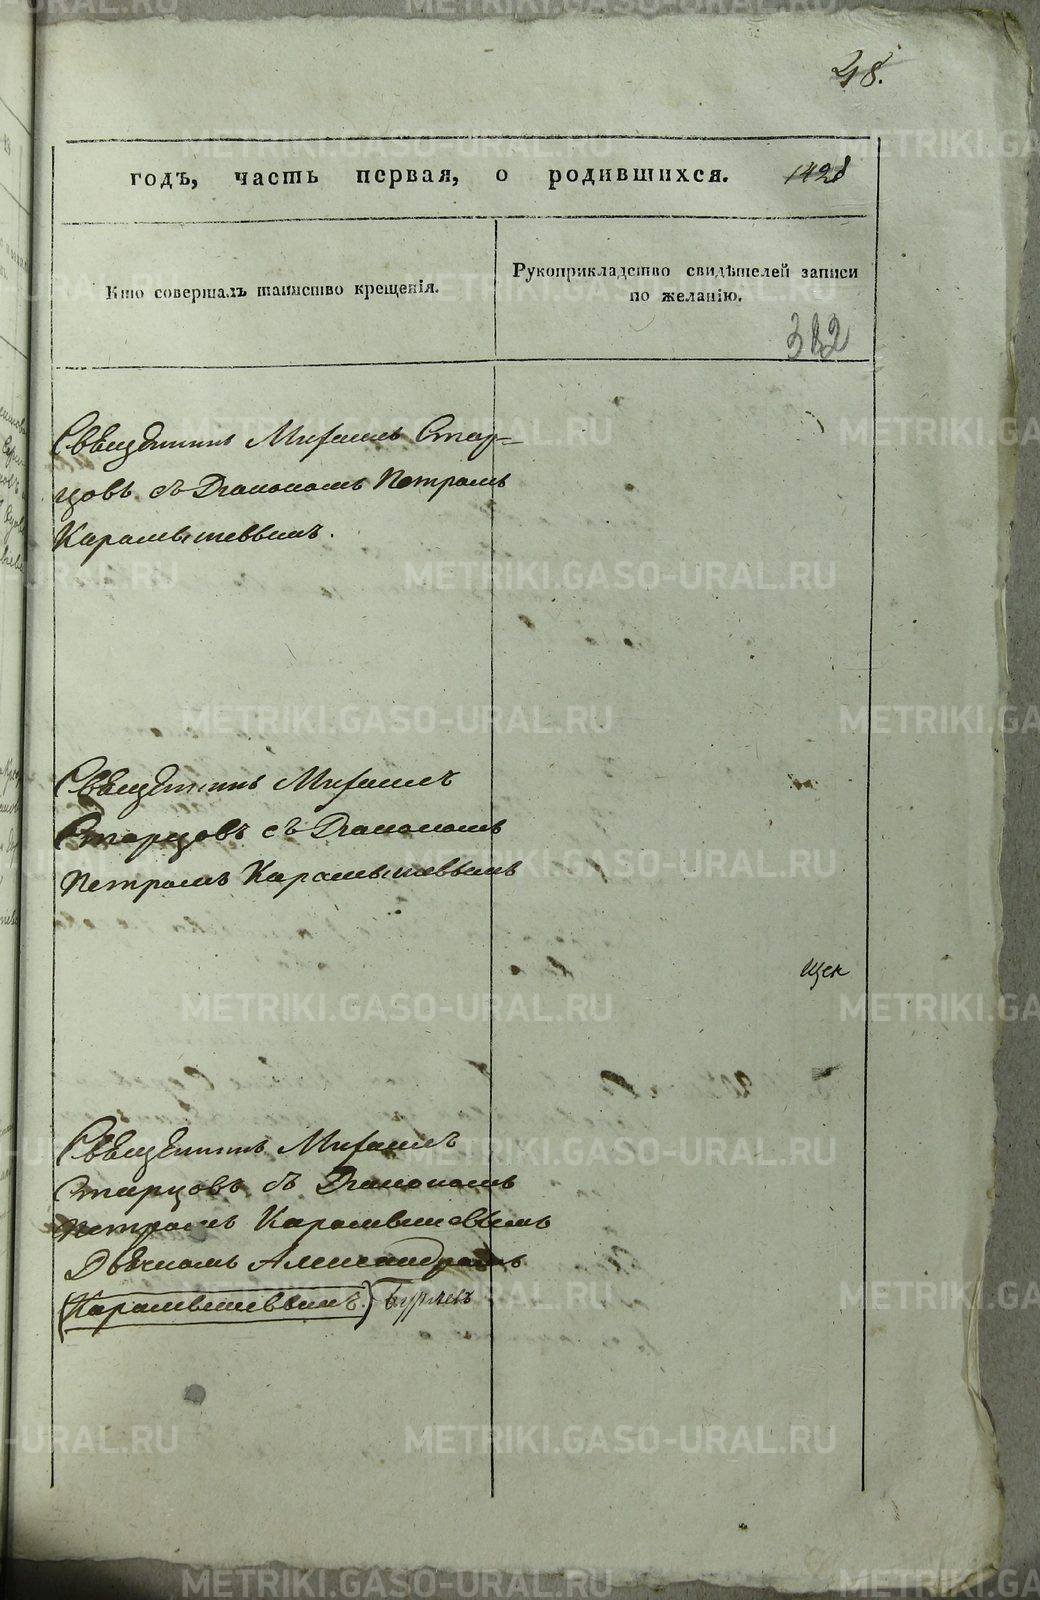 28.
годъ, часть первая, о родившихся. 1428
Кто совершалъ таинство крещенія.
Рукоприкладство свидѣтелей записи
по желанію.
382
Свѣщеннікъ Михаилъ Стар=
цовъ съ Діакономъ Петромъ
Карамышевымъ.
Свѣщеннікъ Михаилъ
Старцовъ съ Діакономъ
Петромъ Карамышевымъ
Щек
Свѣщеннікъ Михаилъ
Старцовъ съ Діакономъ
Петромъ Карамышевымъ
Дьячкомъ Александромъ
(Карамышевымъ.)
METRIKI.GASO-URAL.RU